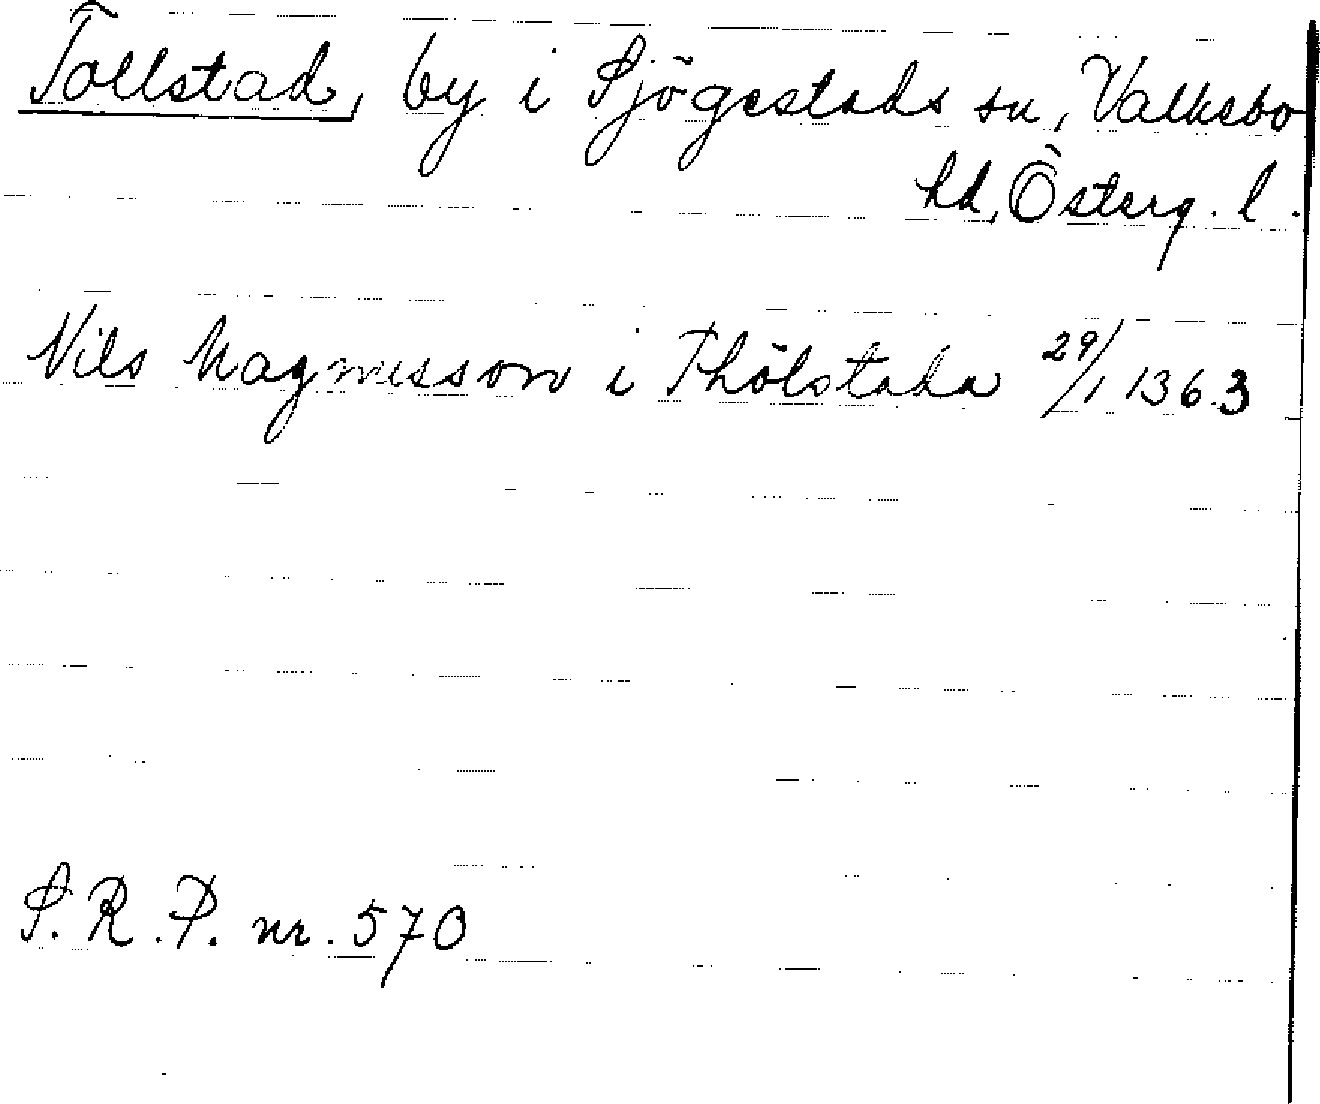 Tollstad, by i Sjögestads sn, Valkebo
hd, Österg. l.
Nils Magnusson i Thôlstadha 29/1 1363
S. R. P. nr. 570